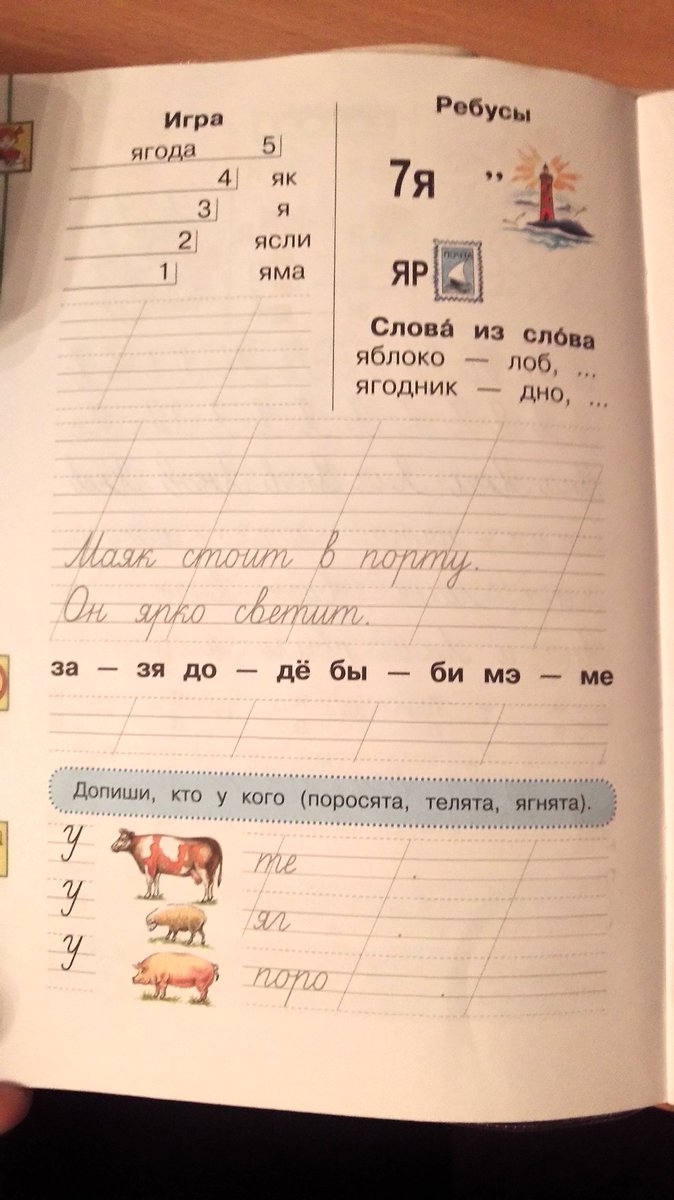 Игра
ягода 5
4 як
3 я
2 ясли
1 яма
Ребусы
7я ,,
ЯР ПОЧТА
Слова́ из сло́ва
яблоко — лоб, ...
ягодник — дно, ...
Маяк стоит в порту.
Он ярко светит.
за — зя до — дё бы — би мэ — ме
Допиши, кто у кого (поросята, телята, ягнята).
У те .
У яг .
У поро .